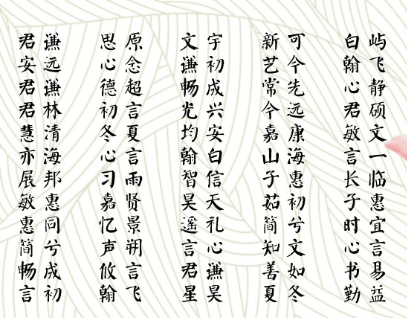 君谦 思原 文宇 新可 白屿
安远 心念 谦初 艺今 翰飞
君谦 德超 畅成 常先 心静
君林 初言 光兴 今远 君硕
慧清 冬夏 均安 嘉康 敏文
亦海 心言 翰白 山海 言一
展邦 习雨 智信 子惠 长临
敏惠 嘉贤 昊天 茹初 子惠
惠同 忆景 遥礼 简兮 时宜
简兮 声朔 言心 知文 心言
畅成 攸言 君谦 善如 书易
言初 翰飞 星昊 夏冬 勤益